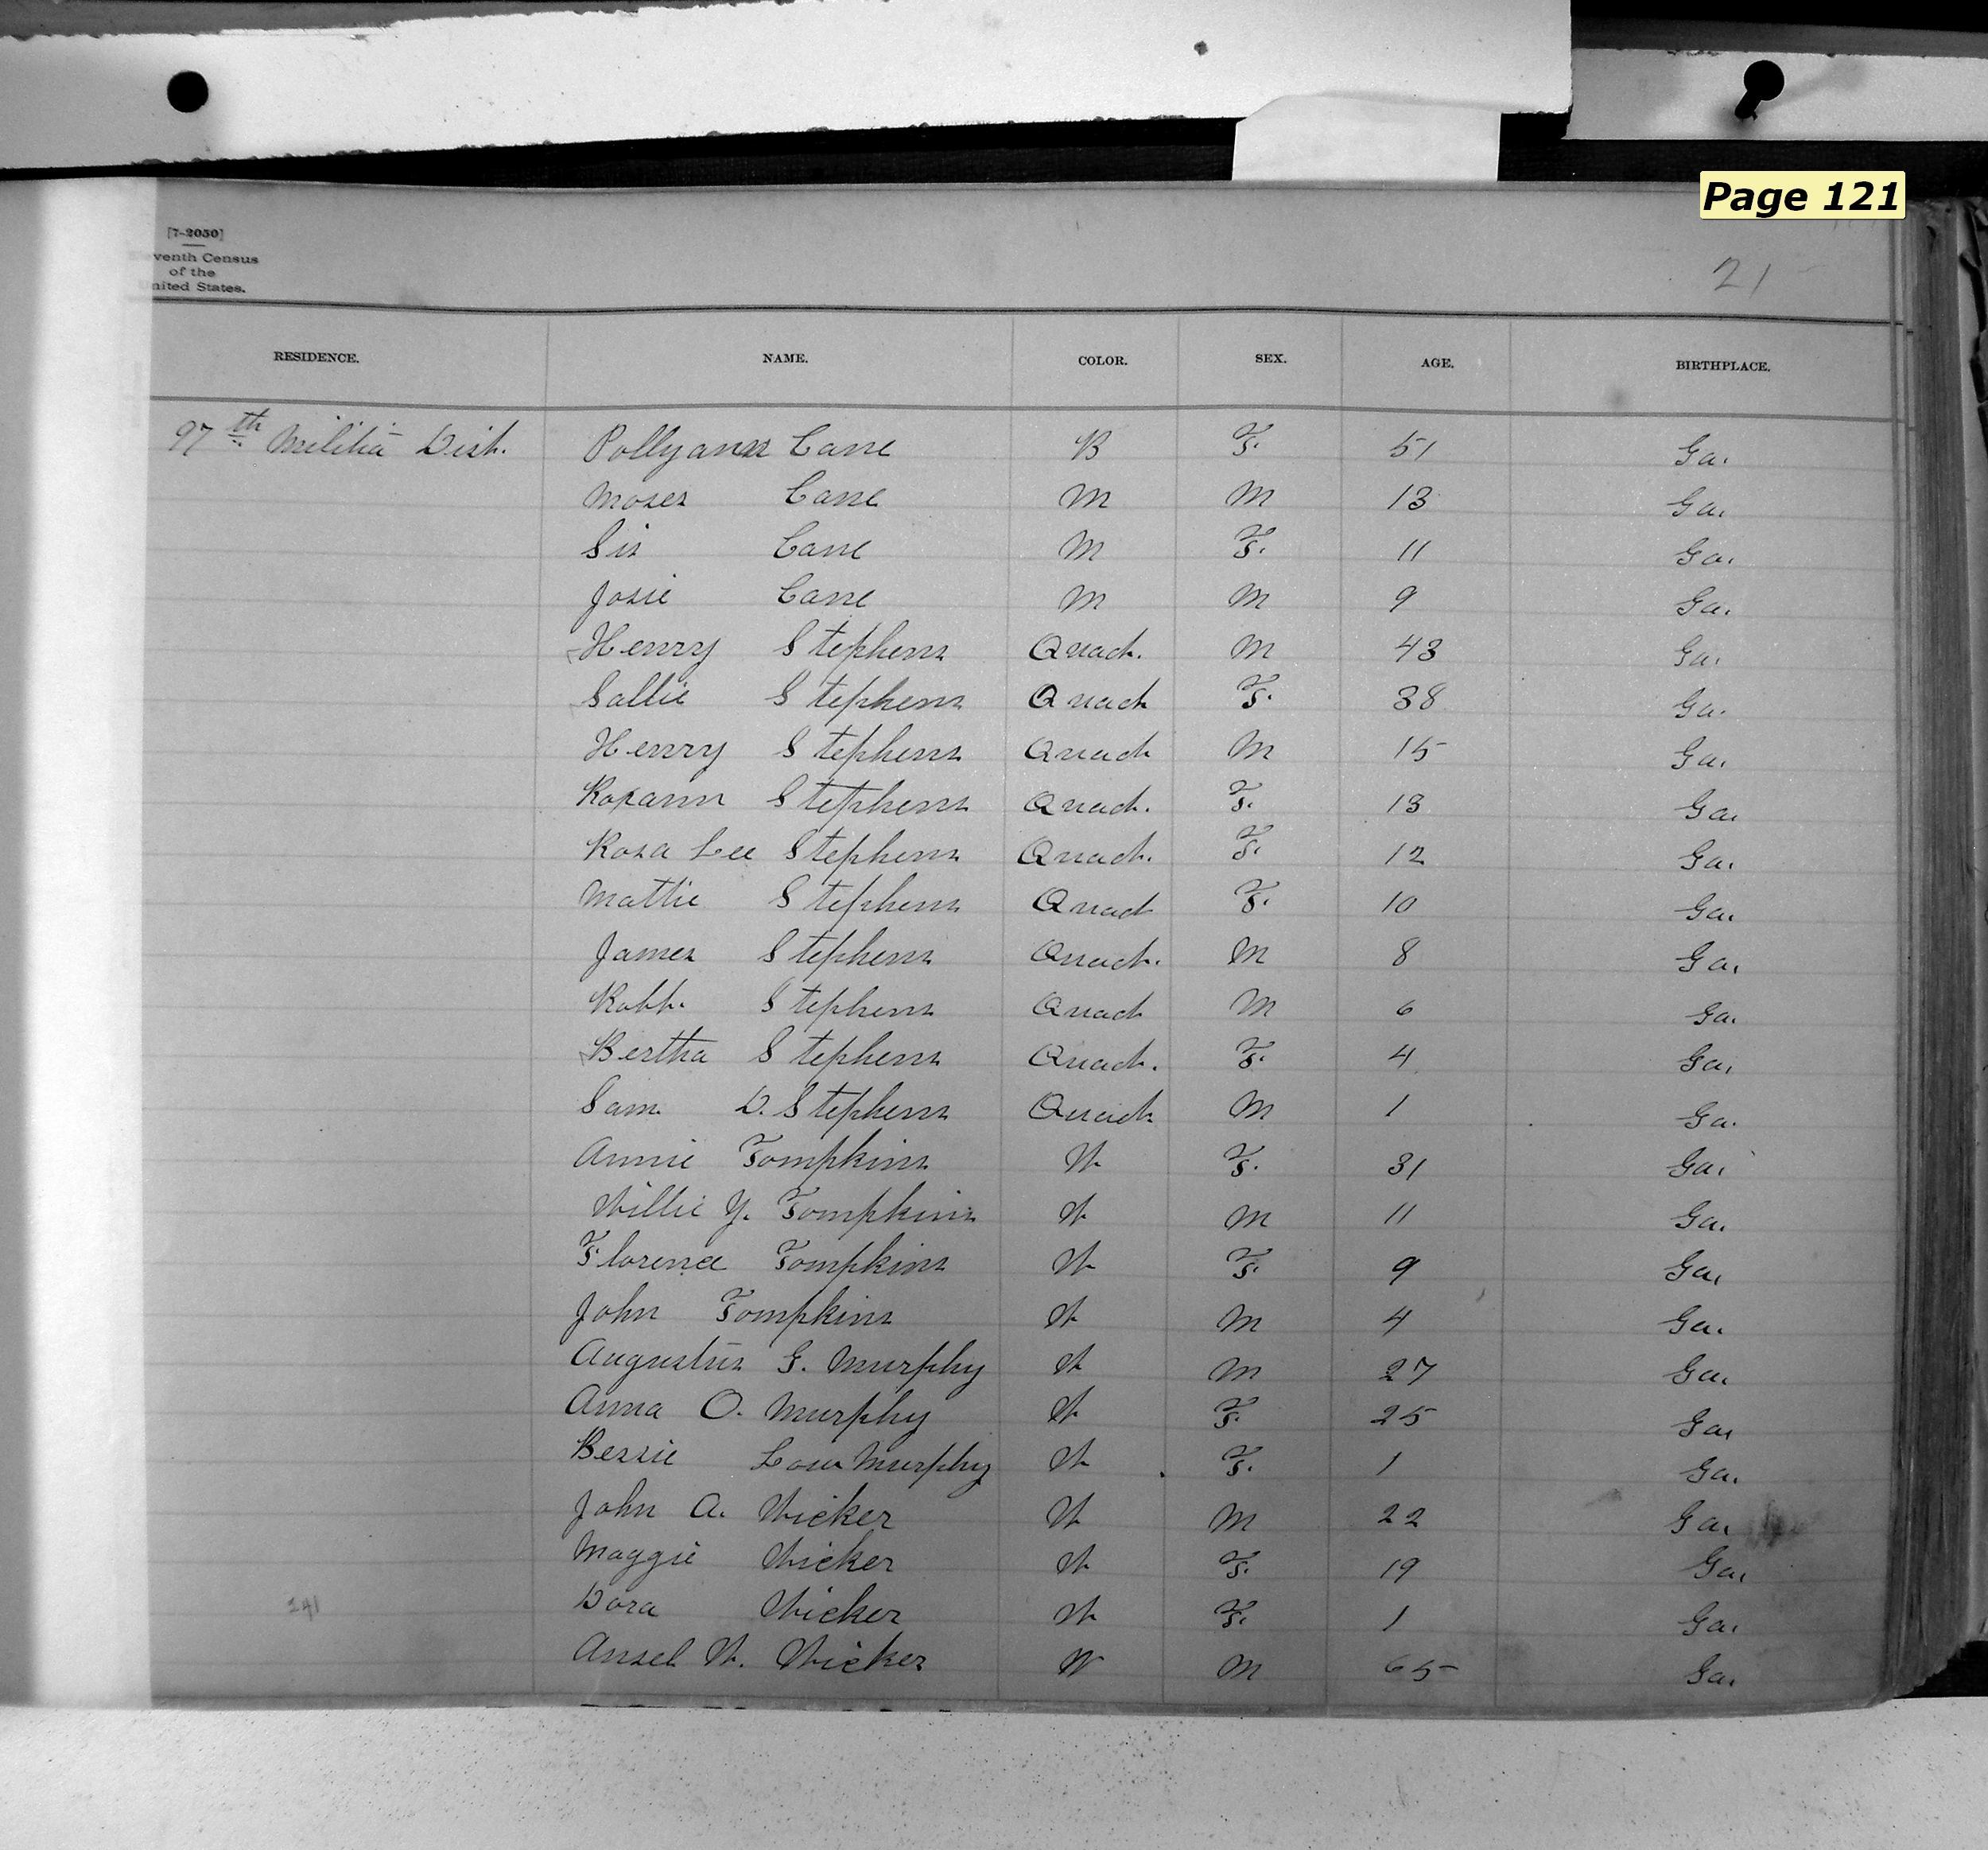 Page 121
[7-2050]
venth Census
of the
nited States.
21
RESIDENCE. NAME. COLOR. SEX. AGE. BIRTHPLACE.
97th Militia Dist. Pollyann Cane B F. 51 Ga.
Moses Cane M M 13 Ga.
Sis Cane M F. 11 Ga.
Josie Cane M M 9 Ga.
Henry Stephens Quad. M 43 Ga.
Sallie Stephens Quad F. 38 Ga.
Henry Stephens Quad M 15 Ga.
Roxann Stephens Quad. F. 13 Ga.
Rosa Lee Stephens Quad. F. 12 Ga.
Mattie Stephens Quad F. 10 Ga.
James Stephens Quad. M 8 Ga.
Robt. Stephens Quad M 6 Ga.
Bertha Stephens Quad. F. 4 Ga.
Sam D. Stephens Quad M 1 Ga.
Annie Tompkins W F. 31 Ga.
Willie Y. Tompkins W M 11 Ga.
Florence Tompkins W F. 9 Ga.
John Tompkins W M 4 Ga.
Augustus G. Murphy W M 27 Ga.
Anna O. Murphy W F. 25 Ga.
Bessie Lou Murphy W F. 1 Ga.
John A. Wicker W M 22 Ga.
Maggie Wicker W F. 19 Ga.
241 Dora Wicker W F. 1 Ga.
Ansel W. Wicker W M 65 Ga.